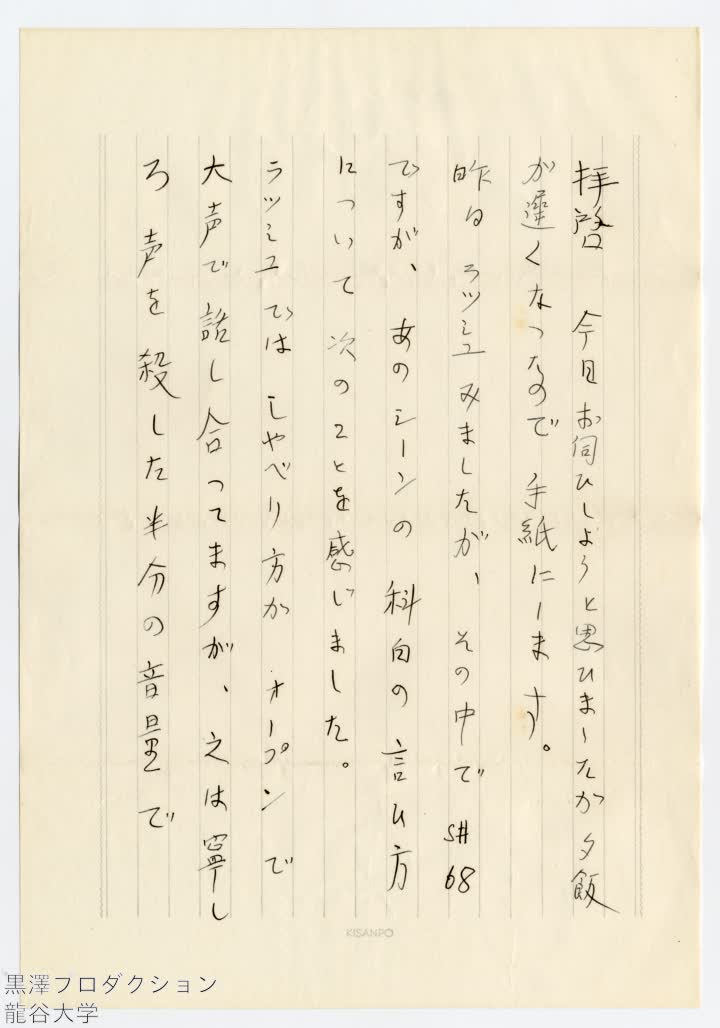 拝啓　今日お伺ひしようと思ひましたが夕飯
が遅くなつたので　手紙にします。
昨日　ラッシュみましたが、その中で　S#68
ですが、あのシーンの　科白の　言ひ方
について　次のことを感じました。
ラッシュでは　しゃべり方が　オープン　で
大声で　話し合ってますが、之は寧し
ろ　声を　殺した半分の音量で
KISANPO
黒澤プロダクション
龍谷大学